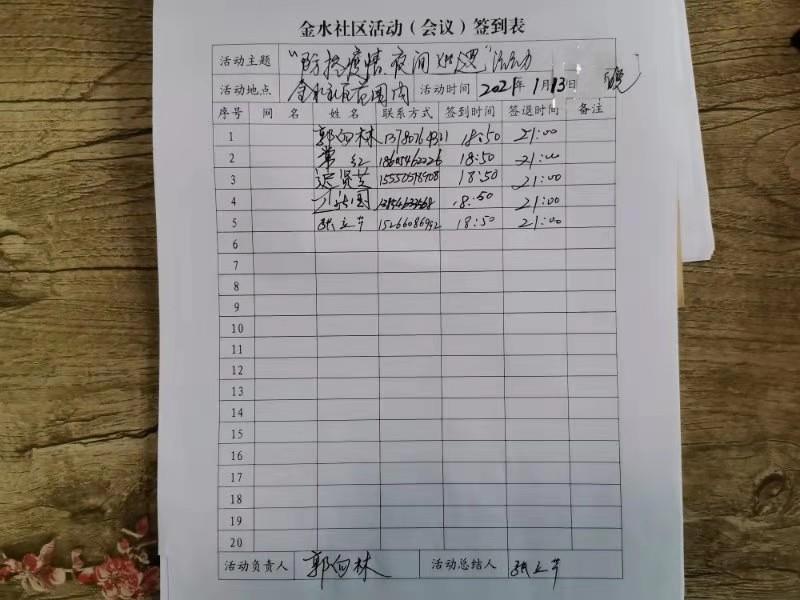 金水社区活动（会议）签到表
活动主题 “防控疫情、夜间巡逻”活动
活动地点 金水社区范围内 活动时间 2021年1月13日 晚
序号 网 名 姓 名 联系方式 签到时间 签退时间 备注
1 郭向林 18:50 21:00
2 常红 18605462226 18:50 21:00
3 迟贤芝 15550598908 18:50 21:00
4 18:50 21:00
5 张立芹 15266086952 18:50 21:00
6
7
8
9
10
11
12
13
14
15
16
17
18
19
20
活动负责人 郭向林 活动总结人 张立芹